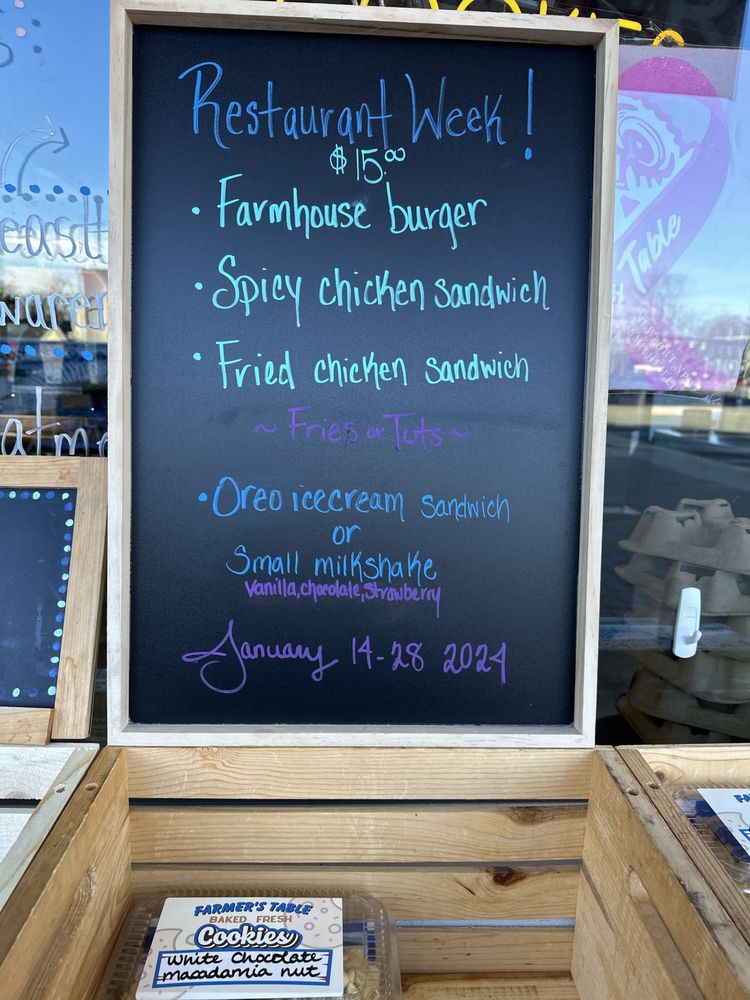 Restaurant Week!
$15.00
• Farmhouse burger
• Spicy chicken sandwich
• Fried chicken sandwich
~ Fries or Tots ~
• Oreo icecream sandwich
or
Small milkshake
Vanilla, chocolate, Strawberry
January 14-28 2024
Table
FARMER'S TABLE
BAKED FRESH
Cookies
White Chocolate
macadamia nut